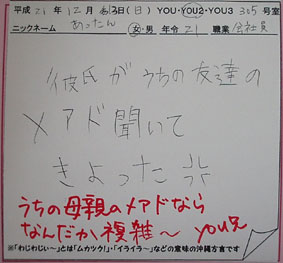 平成 21 年 12 月 3日(日) YOU・YOU2・YOU3 305 号室
ニックネーム あったん 女・男 年令 21 職業 会社員
彼氏がうちの友達の
メアド聞いて
きよった
うちの母親のメアドなら
なんだか複雑～ you兄
※「わじわじぃ～」とは「ムカツク!」・「イライラ～」などの意味の沖縄方言です